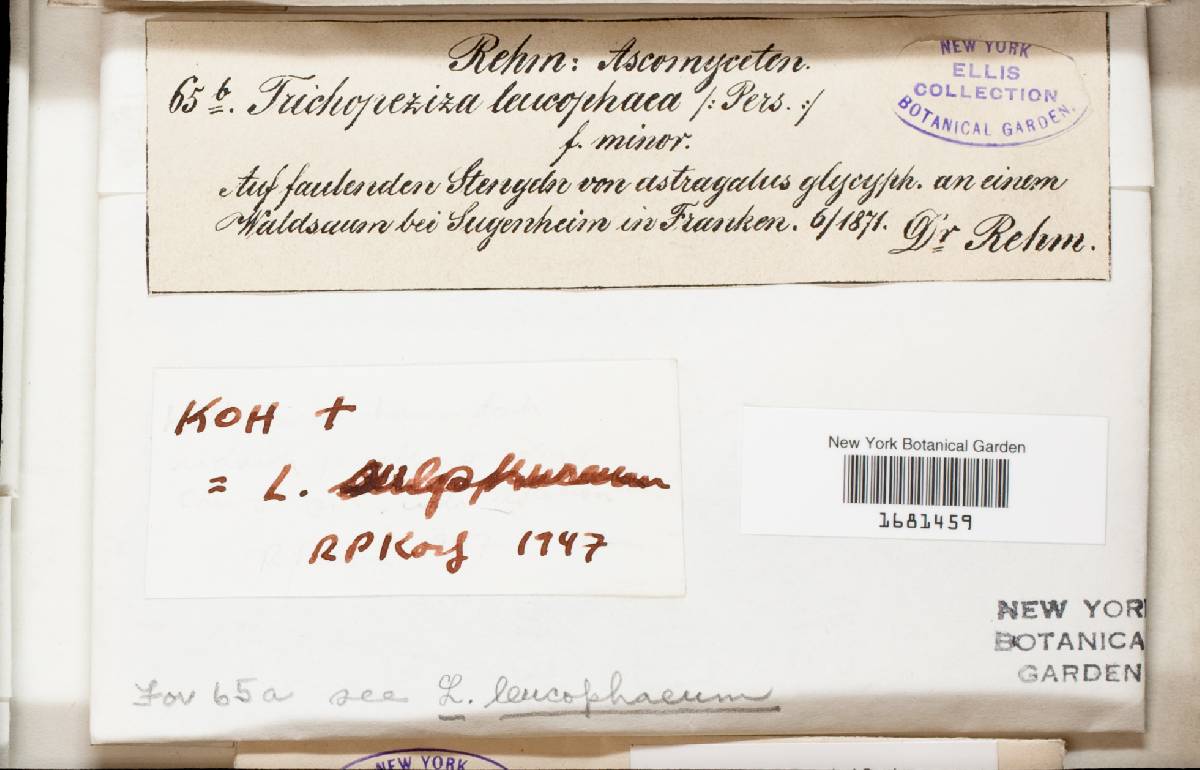 Rehm: Ascomyceten.
65 b. Trichopeziza leucophaea /: Pers. :/
f. minor.
Auf faulenden Stengeln von astragalus glycyph. an einem
Waldsaum bei Sugenheim in Franken. 6/1871. Dr Rehm.
NEW YORK
ELLIS
COLLECTION
BOTANICAL GARDEN.
KOH +
= L. sulphureum
RPKorf 1947
New York Botanical Garden
1681459
NEW YOR
BOTANICA
GARDEN
For 65a see L. leucophaeum
NEW YORK